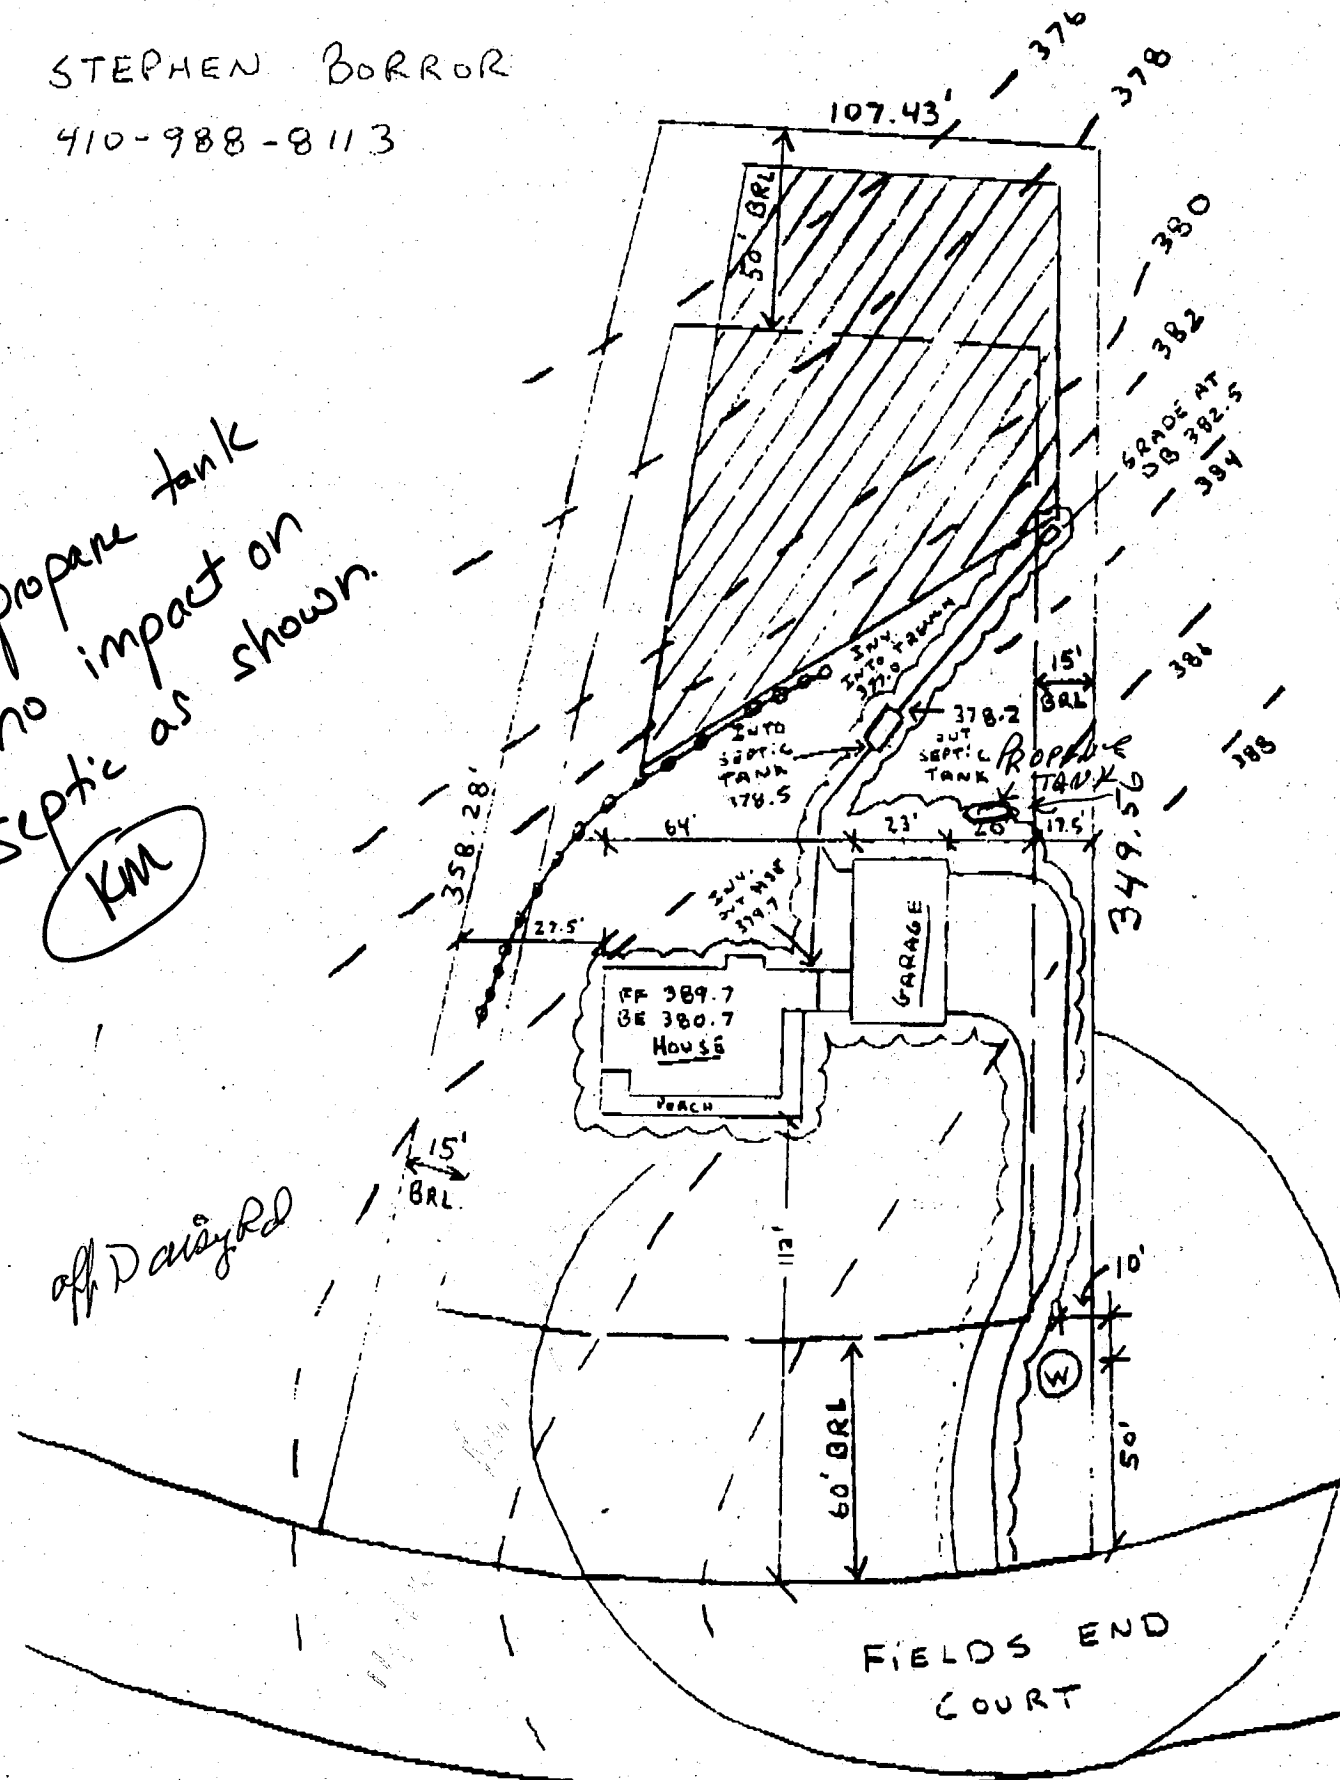 STEPHEN BORROR
410-988-8113
376
378
107.43'
50' BRL
380
382
GRADE AT
DB 382.5
384
propane tank
no impact on
septic as shown.
KM
INV.
INTO TRENCH
377.0
15'
BRL
386
388
INTO
SEPTIC
TANK
378.5
378.2
OUT
SEPTIC
TANK
PROPANE
TANK
358.28'
349.56
64'
23'
20'
17.5'
INV.
OUT HSE
379.7
27.5'
GARAGE
FF 389.7
BE 380.7
HOUSE
PORCH
15'
BRL
off Daisy Rd
112'
10'
W
60' BRL
50'
FIELDS END
COURT